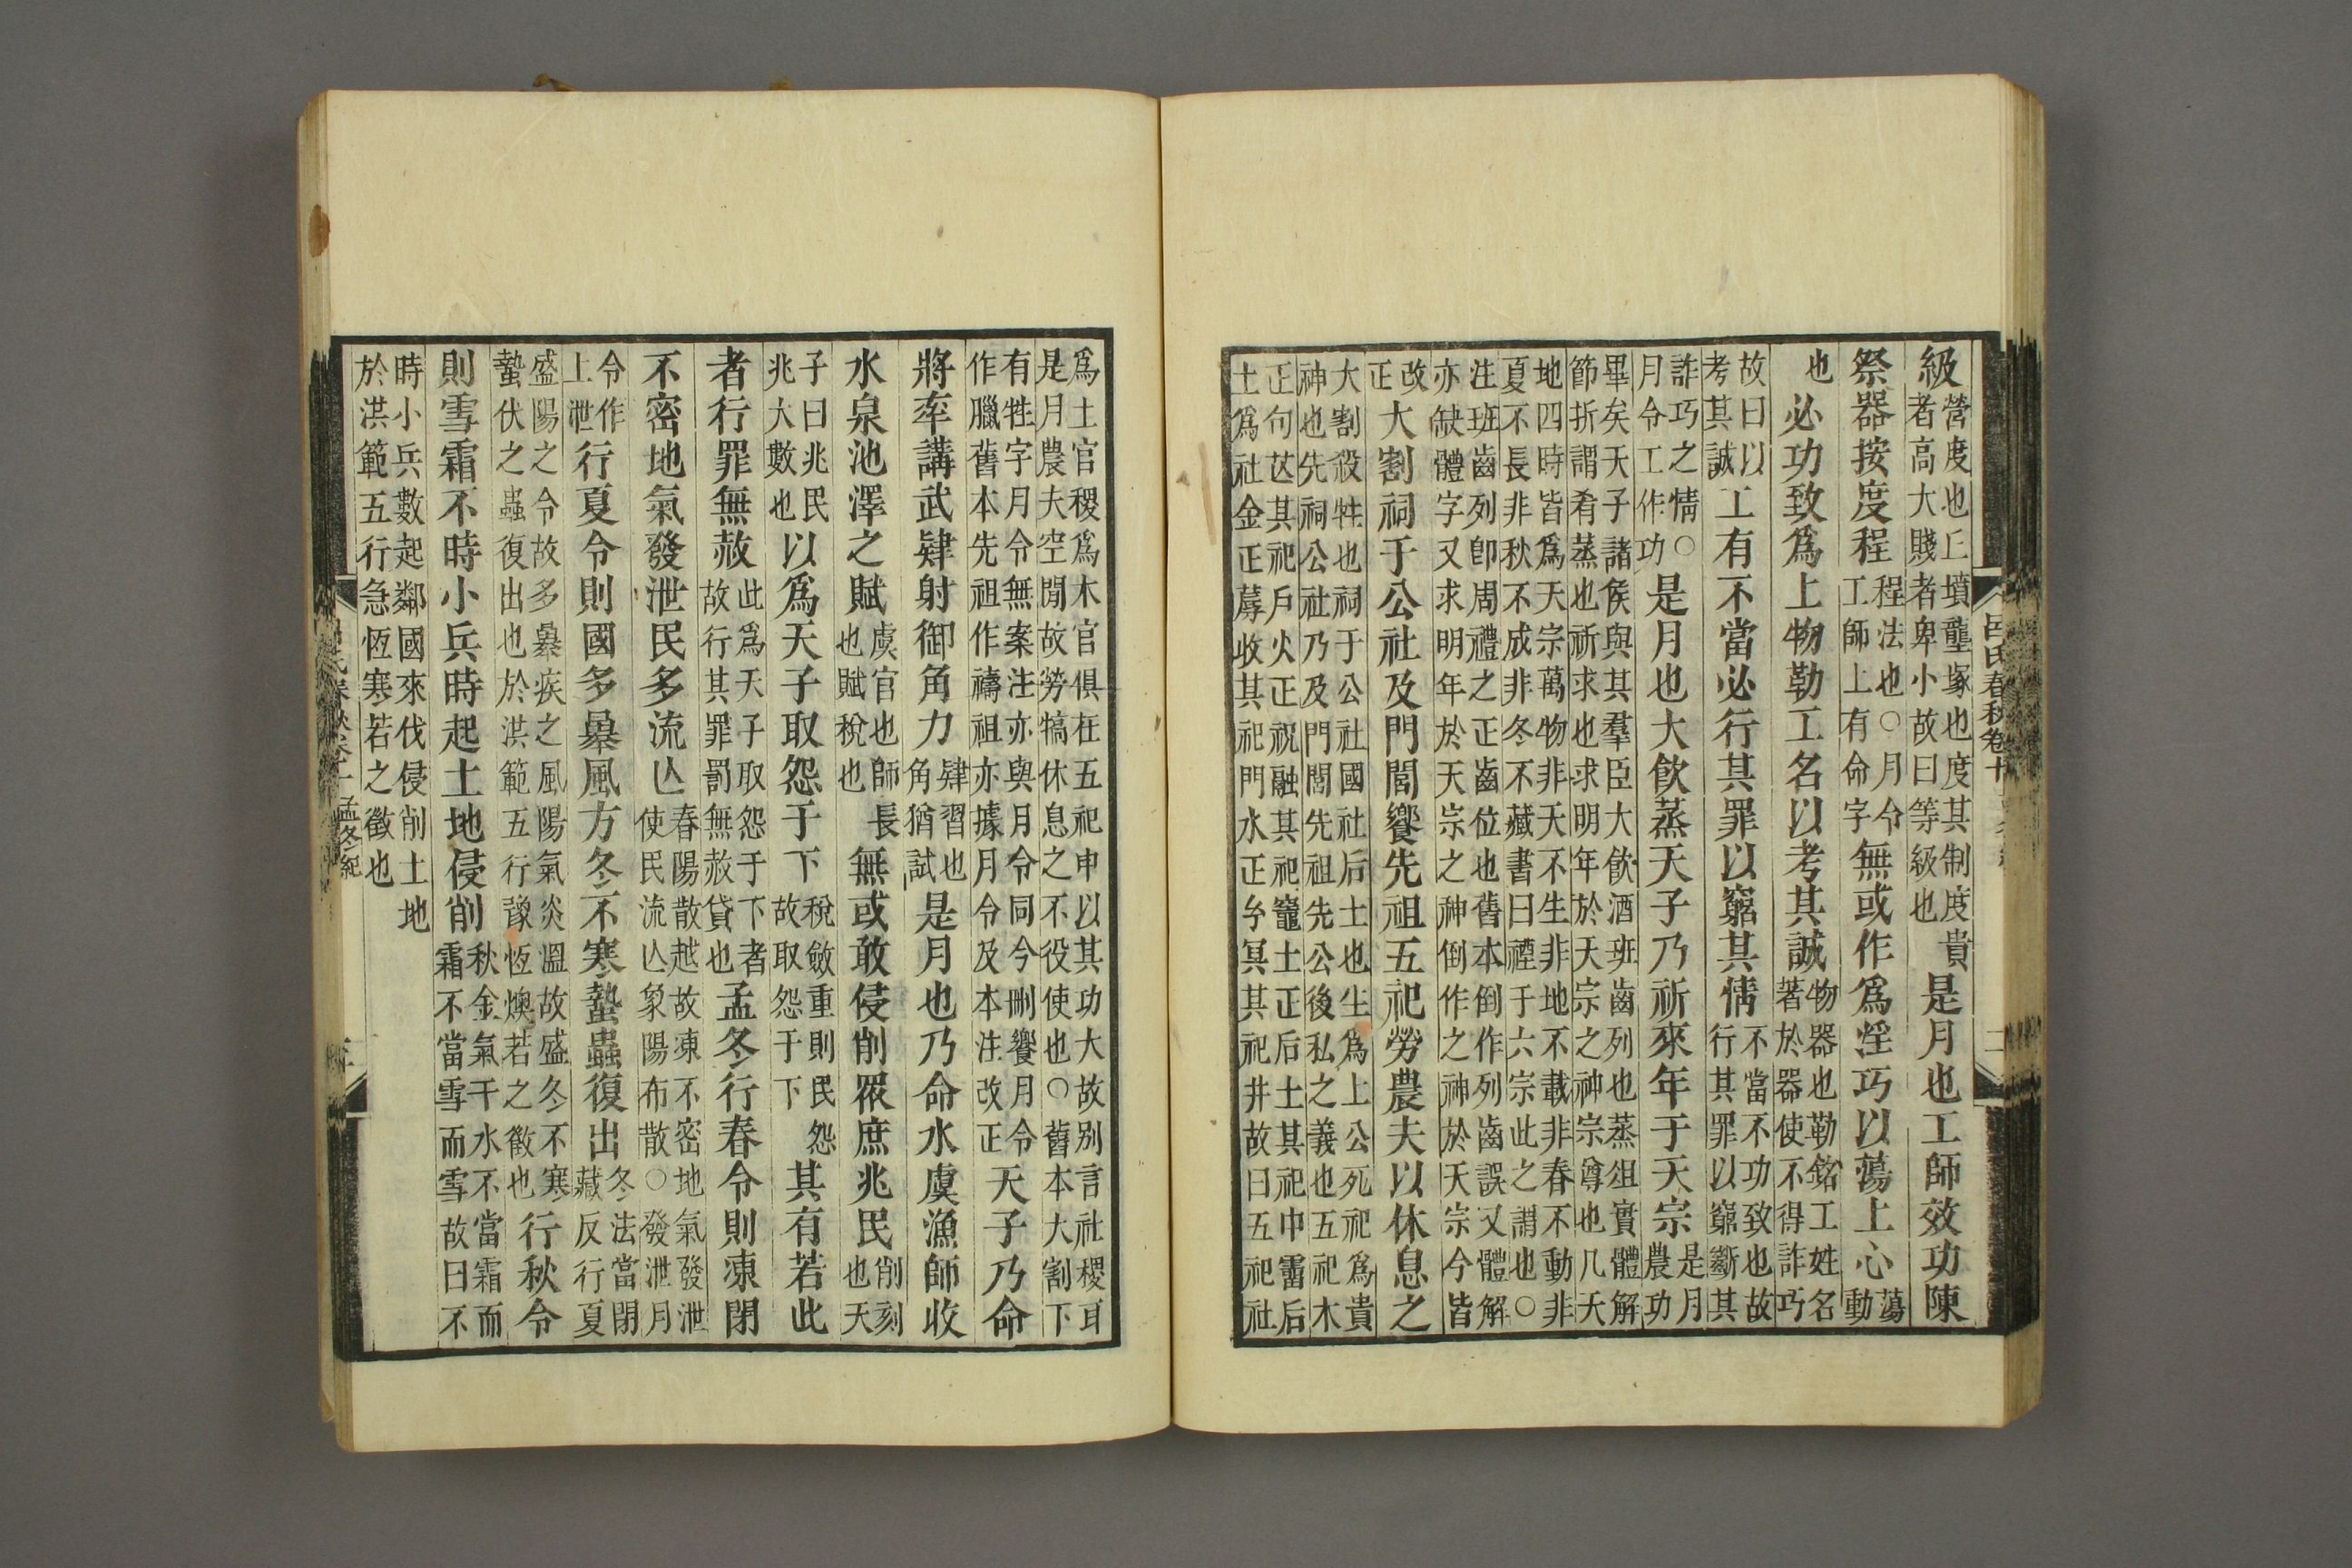 呂氏春秋卷十
級營度也丘墳壟塚也度其制度貴者高大賤者卑小故曰等級也是月也工師效功陳
祭器按度程程法也○月令工師上有命字無或作爲淫巧以蕩上心蕩動
也必功致爲上物勒工名以考其誠物器也勒銘工姓名著於器使不得詐巧
故曰以考其誠工有不當必行其罪以窮其情不當不功致也故行其罪以窮斷其
詐巧之情○月令工作功是月也大飲蒸天子乃祈來年于天宗是月農功
畢矣天子諸侯與其羣臣大飲酒班齒列也蒸俎實體解
節折謂肴蒸也祈求也求明年於天宗之神宗尊也凡天
地四時皆爲天宗萬物非天不生非地不載非春不動非
夏不長非秋不成非冬不藏書曰禋于六宗此之謂也○
注班齒列卽周禮之正齒位也舊本倒作列齒誤又體解
亦缺體字又求明年於天宗之神倒作之神於天宗今皆
改正大割祠于公社及門閭饗先祖五祀勞農夫以休息之
大割殺牲也祠于公社國社后土也生爲上公死祀爲貴
神也先祠公社乃及門閭先祖先公後私之義也五祀木
正句芒其祀戶火正祝融其祀竈土正后土其祀中霤后
土爲社金正蓐收其祀門水正玄冥其祀井故曰五祀社
爲土官稷爲木官俱在五祀中以其功大故別言社稷耳
是月農夫空閒故勞犒休息之不役使也○舊本大割下
有牲字月令無案注亦與月令同今刪饗月令作臘舊本先祖作禱祖亦據月令及本注改正天子乃命
將率講武肄射御角力肄習也角猶試是月也乃命水虞漁師收
水泉池澤之賦虞官也師長也賦稅也無或敢侵削眾庶兆民削刻也天
子曰兆民兆大數也以爲天子取怨于下稅斂重則民怨故取怨于下其有若此
者行罪無赦此爲天子取怨于下者故行其罪罰無赦貸也孟冬行春令則凍閉
不密地氣發泄民多流亾春陽散越故凍不密地氣發泄使民流亾象陽布散○發泄月
令作上泄行夏令則國多暴風方冬不寒蟄蟲復出冬法當閉藏反行夏
盛陽之令故多暴疾之風陽氣炎溫故盛冬不寒蟄伏之蟲復出也於洪範五行豫恆燠若之徵也行秋令
則雪霜不時小兵時起土地侵削秋金氣干水不當霜而霜不當雪而雪故曰不
時小兵數起鄰國來伐侵削土地
於洪範五行急恆寒若之徵也
孟冬紀